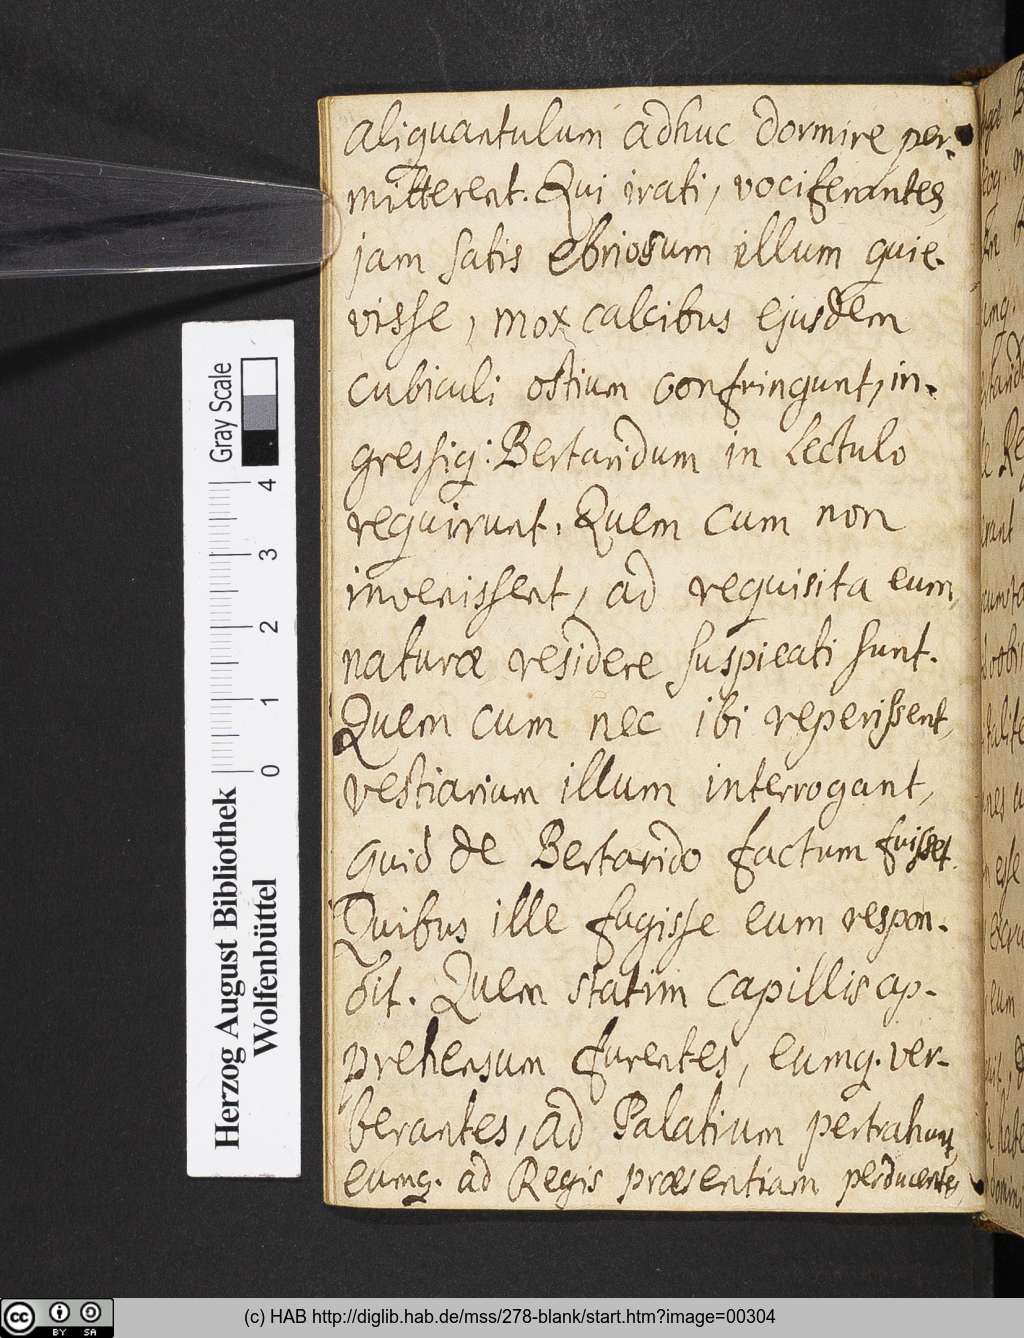 aliquantulum adhuc dormire per-
mitterent. Qui irati, vociferantes,
jam satis ebriosum illum quie-
visse, mox calcibus ejusdem
cubiculi ostium confringunt, in-
gressiq: Bertaridum in Lectulo
requirunt. Quem cum non
invenissent, ad requisita eum,
naturæ residere suspicati sunt.
Quem cum nec ibi reperissent,
vestiarium illum interrogant,
quid de Bertarido factum fuisset.
Quibus ille fugisse eum respon-
dit. Quem statim capillis ap-
prehensum furentes, eumq. ver-
berantes, ad Palatium pertrahunt,
eumq. ad Regis præsentiam perducentes,
Gray Scale
0 1 2 3 4
Herzog August Bibliothek
Wolfenbüttel
cc BY SA
(c) HAB http://diglib.hab.de/mss/278-blank/start.htm?image=00304